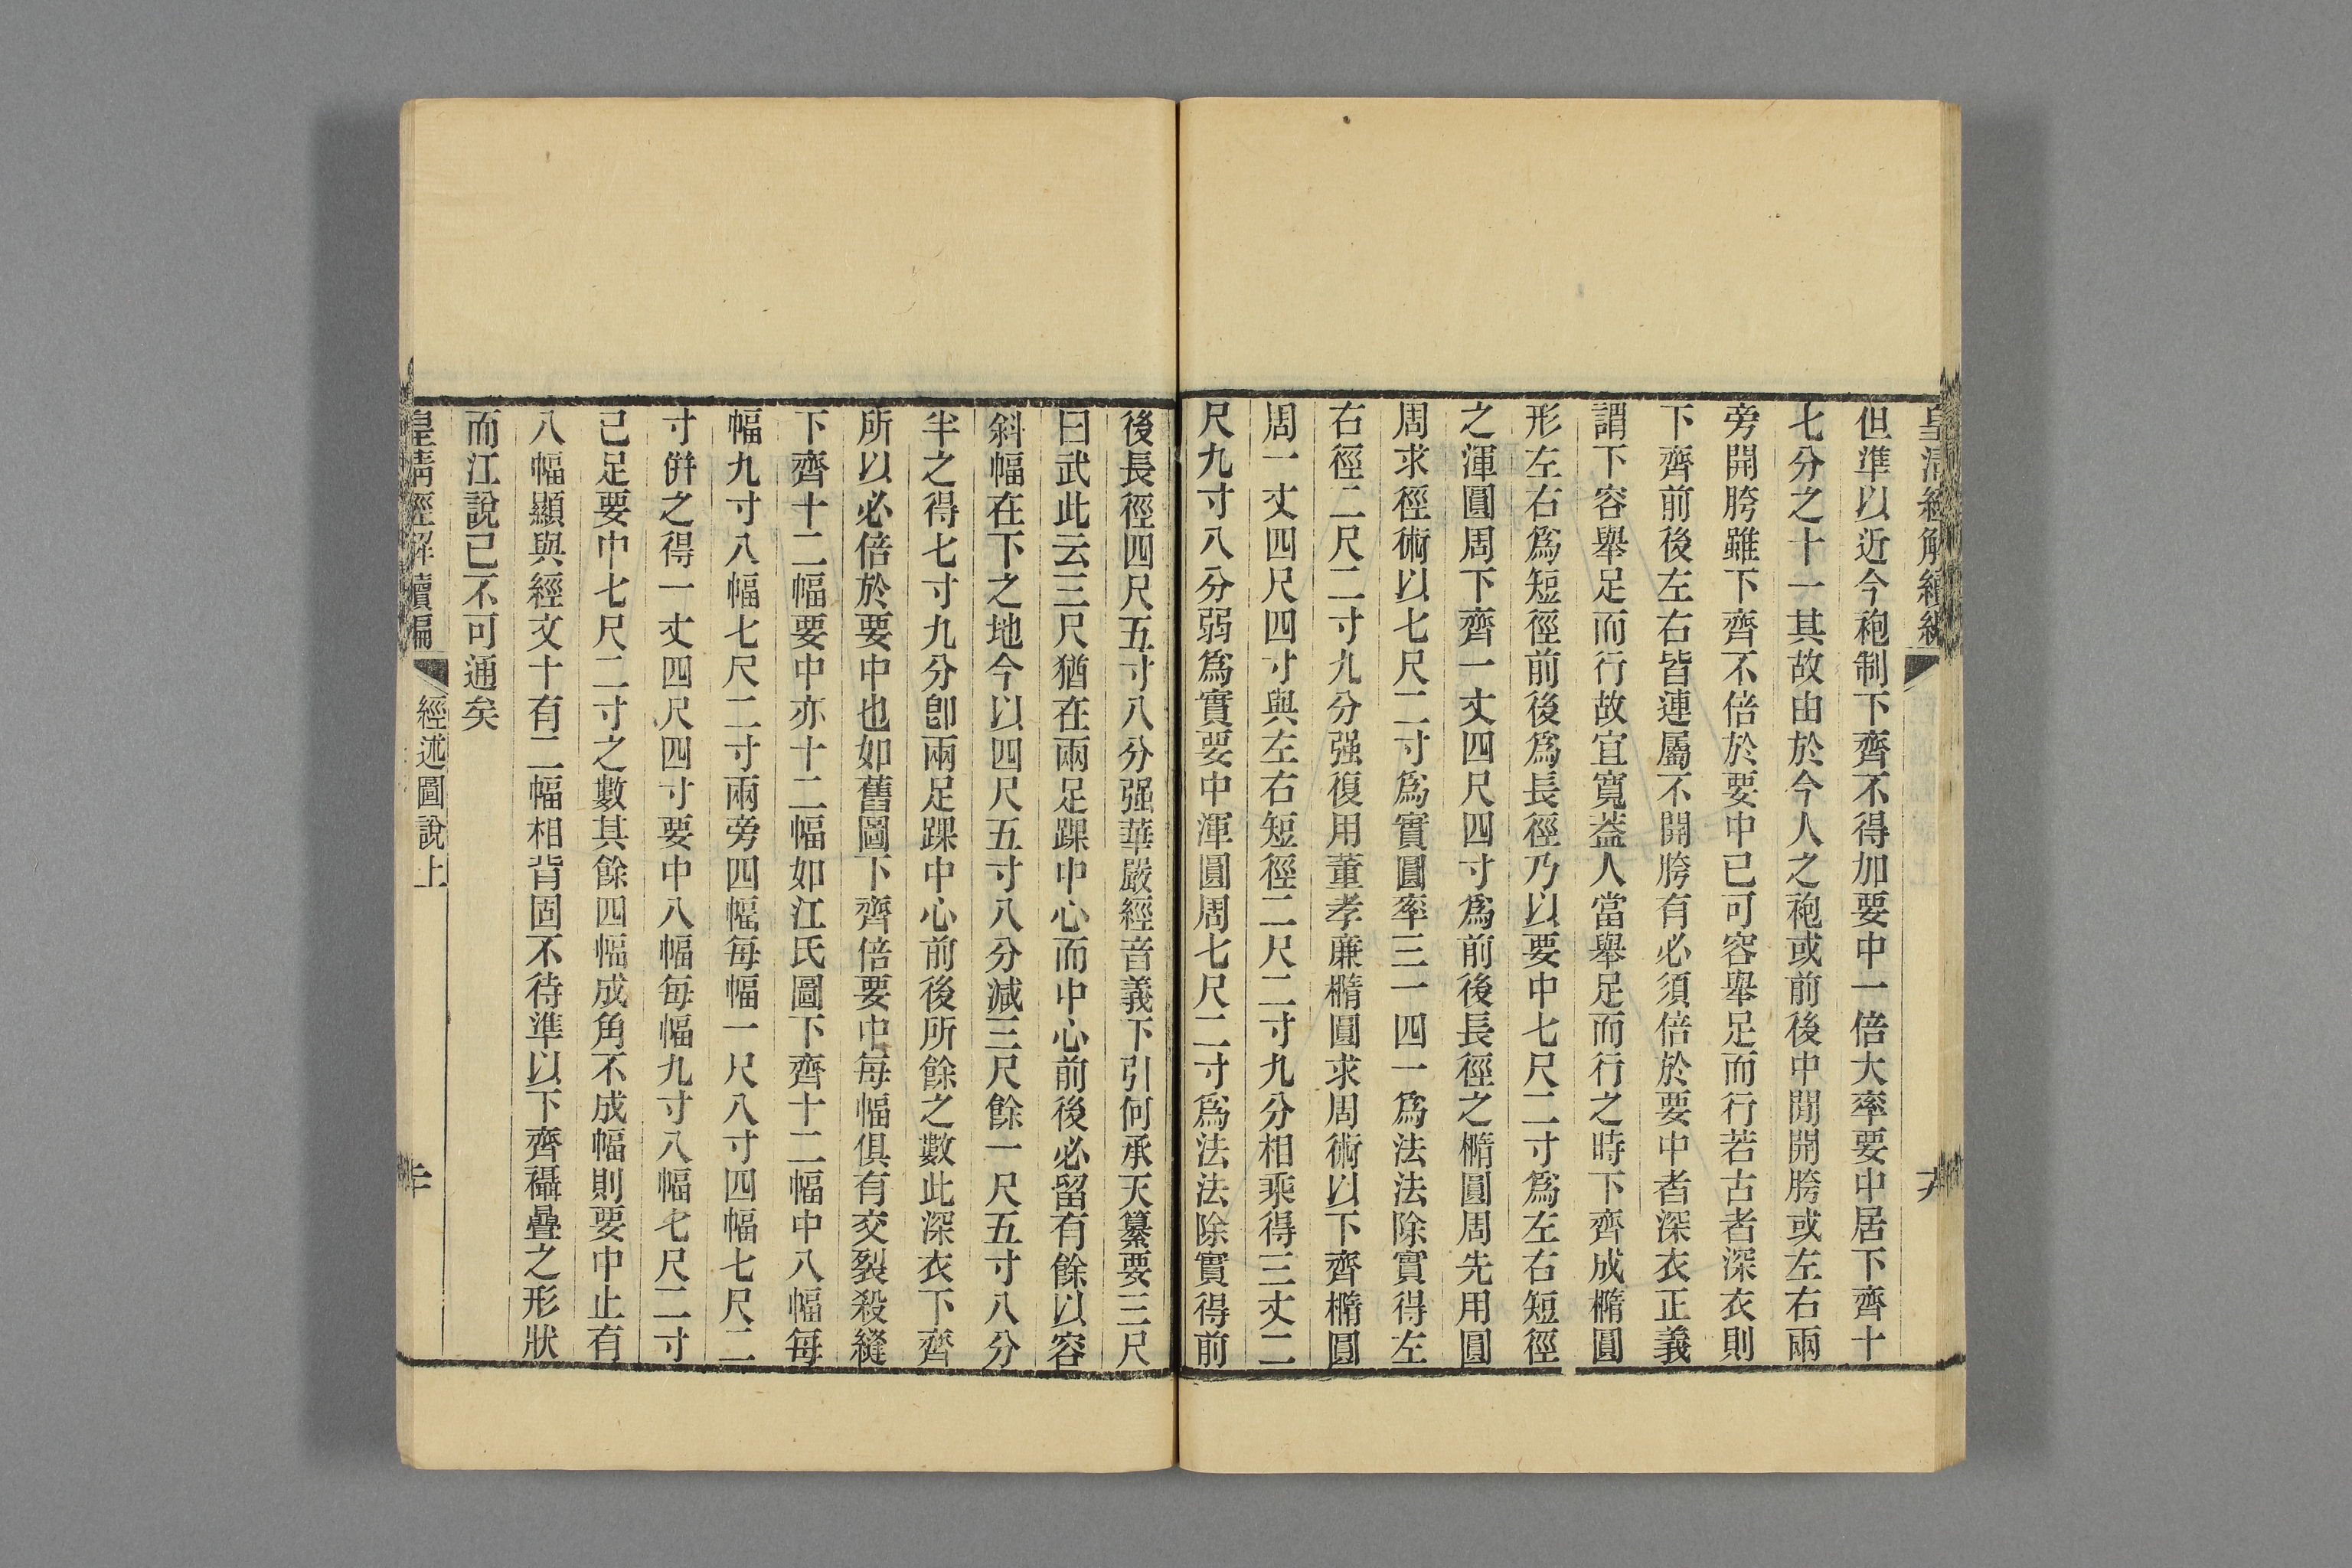 皇清經解續編
但準以近今袍制下齊不得加要中一倍大率要中居下齊十
七分之十一其故由於今人之袍或前後中閒開胯或左右兩
旁開胯雖下齊不倍於要中已可容舉足而行若古者深衣則
下齊前後左右皆連屬不開胯有必須倍於要中者深衣正義
謂下容舉足而行故宜寬葢人當舉足而行之時下齊成橢圓
形左右爲短徑前後爲長徑乃以要中七尺二寸爲左右短徑
之渾圓周下齊一丈四尺四寸爲前後長徑之橢圓周先用圓
周求徑術以七尺二寸爲實圓率三一四一爲法法除實得左
右徑二尺二寸九分强復用董孝廉橢圓求周術以下齊橢圓
周一丈四尺四寸與左右短徑二尺二寸九分相乘得三丈二
尺九寸八分弱爲實要中渾圓周七尺二寸爲法法除實得前
後長徑四尺五寸八分强華嚴經音義下引何承天纂要三尺
曰武此云三尺猶在兩足踝中心而中心前後必留有餘以容
斜幅在下之地今以四尺五寸八分減三尺餘一尺五寸八分
半之得七寸九分卽兩足踝中心前後所餘之數此深衣下齊
所以必倍於要中也如舊圖下齊倍要中每幅俱有交裂殺縫
下齊十二幅要中亦十二幅如江氏圖下齊十二幅中八幅每
幅九寸八幅七尺二寸兩旁四幅每幅一尺八寸四幅七尺二
寸併之得一丈四尺四寸要中八幅每幅九寸八幅七尺二寸
已足要中七尺二寸之數其餘四幅成角不成幅則要中止有
八幅顯與經文十有二幅相背固不待準以下齊襵疊之形狀
而江說已不可通矣
皇清經解續編
經述圖說上